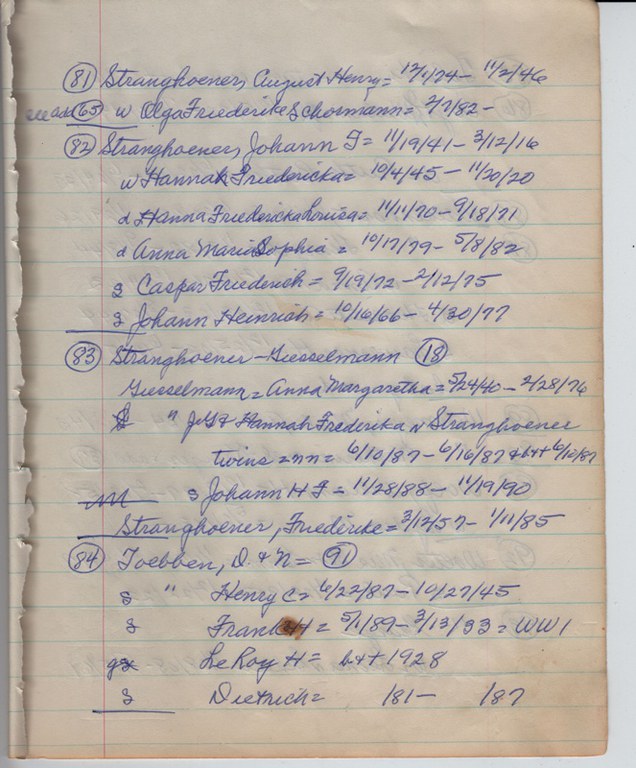 (81) Stranghoener, August Henry = 12/1/74 - 11/2/46
see also (65) w Olga Friederike Schormann = 2/7/82 -
(82) Stranghoener, Johann F = 11/19/41 - 3/12/16
w Hannah Friedericka = 10/4/45 - 11/20/20
d Hanna Friedericka Louisa = 11/11/70 - 9/18/71
d Anna Maria Sophia = 10/17/79 - 5/8/82
s Caspar Friederich = 9/19/72 - 2/12/75
s Johann Heinrich = 10/16/66 - 4/30/77
(83) Stranghoener - Giesselmann (18)
Giesselmann = Anna Margaretha = 5/24/40 - 2/28/76
" J & F Hannah Frederika N Stranghoener
twins = nn = 6/10/87 - 6/16/87 & b++ 6/10/87
s Johann H F = 11/28/88 - 11/19/90
Stranghoener, Friederike = 3/12/57 - 1/11/85
(84) Toebben, D. & N = (91)
s " Henry C = 6/22/87 - 10/27/45
s Frank H = 5/1/89 - 3/13/33 = WW1
gs LeRoy H = b++ 1928
s Dietrich = /81 - /87